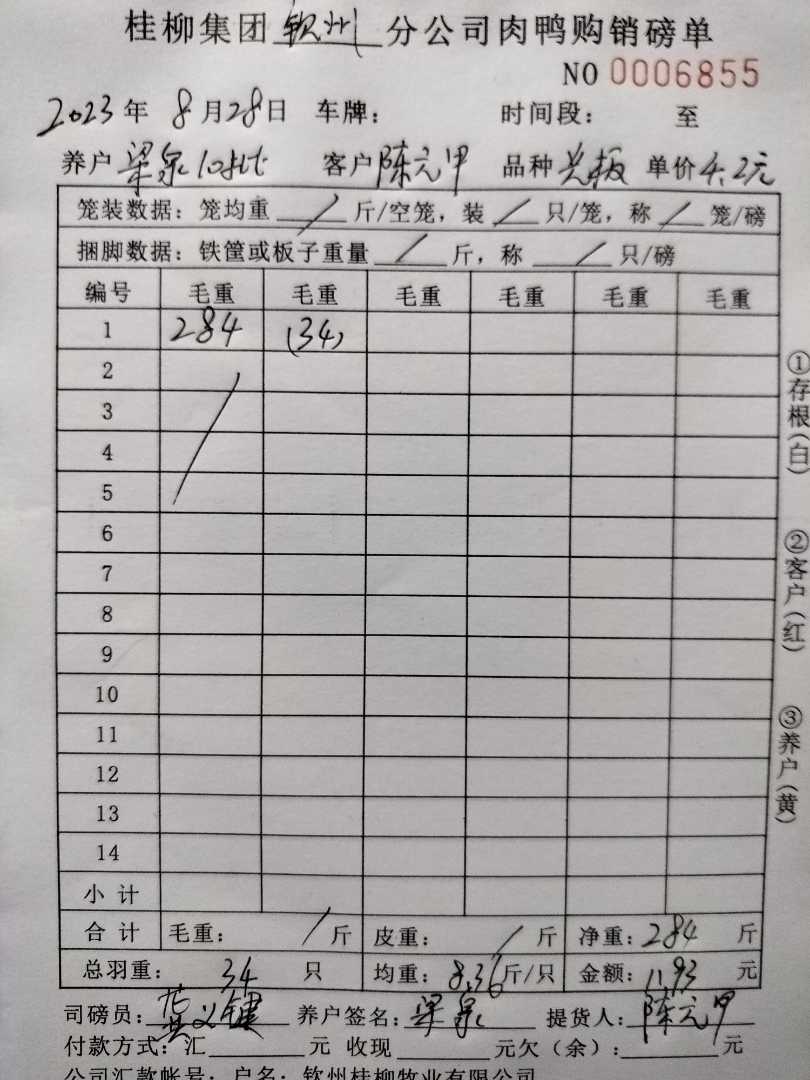 桂柳集团钦州分公司肉鸭购销磅单
NO 0006855
2023年 8月28日 车牌: 时间段: 至
养户 梁泉10批 客户 陈元甲 品种 光板 单价 4.2元
笼装数据: 笼均重 / 斤/空笼, 装 / 只/笼, 称 / 笼/磅
捆脚数据: 铁筐或板子重量 / 斤, 称 / 只/磅
编号 毛重 毛重 毛重 毛重 毛重 毛重
1 284 (34)
2
3
4
5
6
7
8
9
10
11
12
13
14
小计
合计 毛重: / 斤 皮重: / 斤 净重: 284 斤
总羽重: 34 只 均重: 8.36斤/只 金额: 1193 元
司磅员: 义键 养户签名: 梁泉 提货人: 陈元甲
付款方式: 汇 元 收现 元欠(余): 元
公司汇款帐号: 户名: 钦州桂柳牧业有限公司
①存根(白)
②客户(红)
③养户(黄)